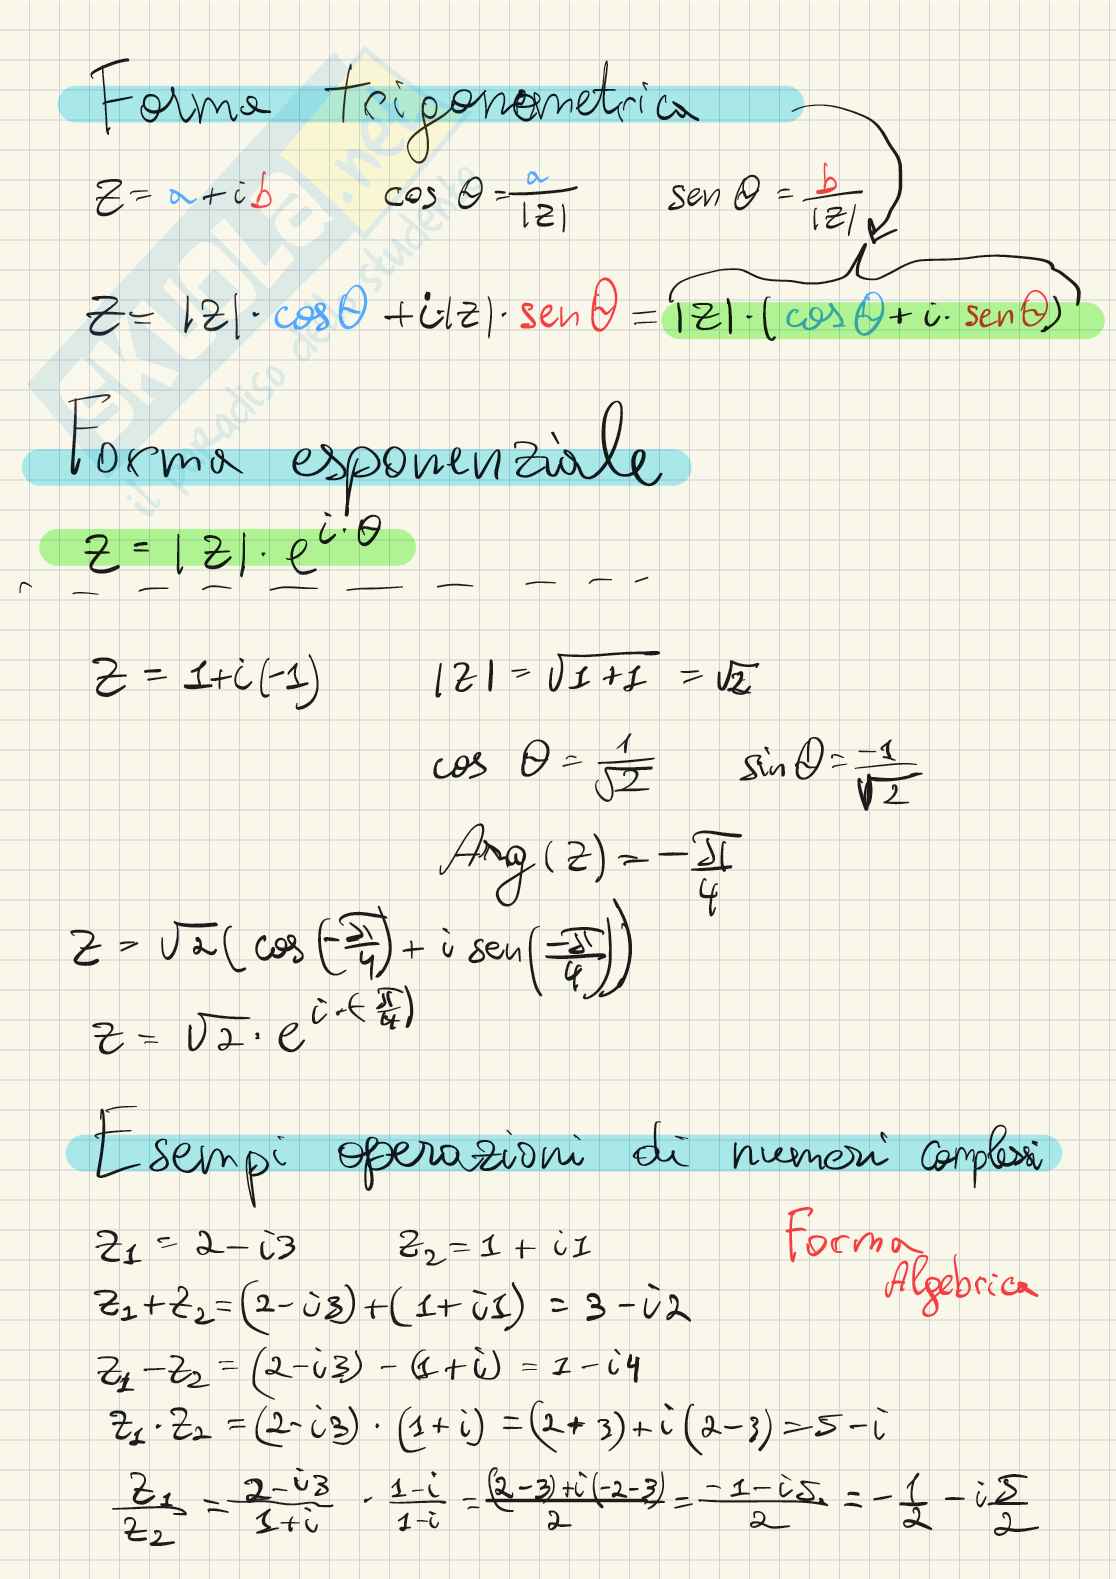 Forma trigonometrica
z = a + i b   cos θ = a/|z|   sen θ = b/|z|
z = |z| · cos θ + i · |z| · sen θ = |z| · (cos θ + i · sen θ)
Forma esponenziale
z = |z| · e^(i · θ)
z = 1 + i(-1)   |z| = √(1+1) = √2
cos θ = 1/√2   sin θ = -1/√2
Arg(z) = -π/4
z = √2 (cos(-π/4) + i sen(-π/4))
z = √2 · e^(i · (-π/4))
Esempi operazioni di numeri complessi
z₁ = 2 - i3   z₂ = 1 + i1   Forma Algebrica
z₁ + z₂ = (2 - i3) + (1 + i1) = 3 - i2
z₁ - z₂ = (2 - i3) - (1 + i) = 1 - i4
z₁ · z₂ = (2 - i3) · (1 + i) = (2 + 3) + i(2 - 3) = 5 - i
z₁/z₂ = (2 - i3)/(1 + i) · (1 - i)/(1 - i) = ((2 - 3) + i(-2 - 3))/2 = (-1 - i5)/2 = -1/2 - i 5/2
SKUOLA.net
il paradiso dello studente